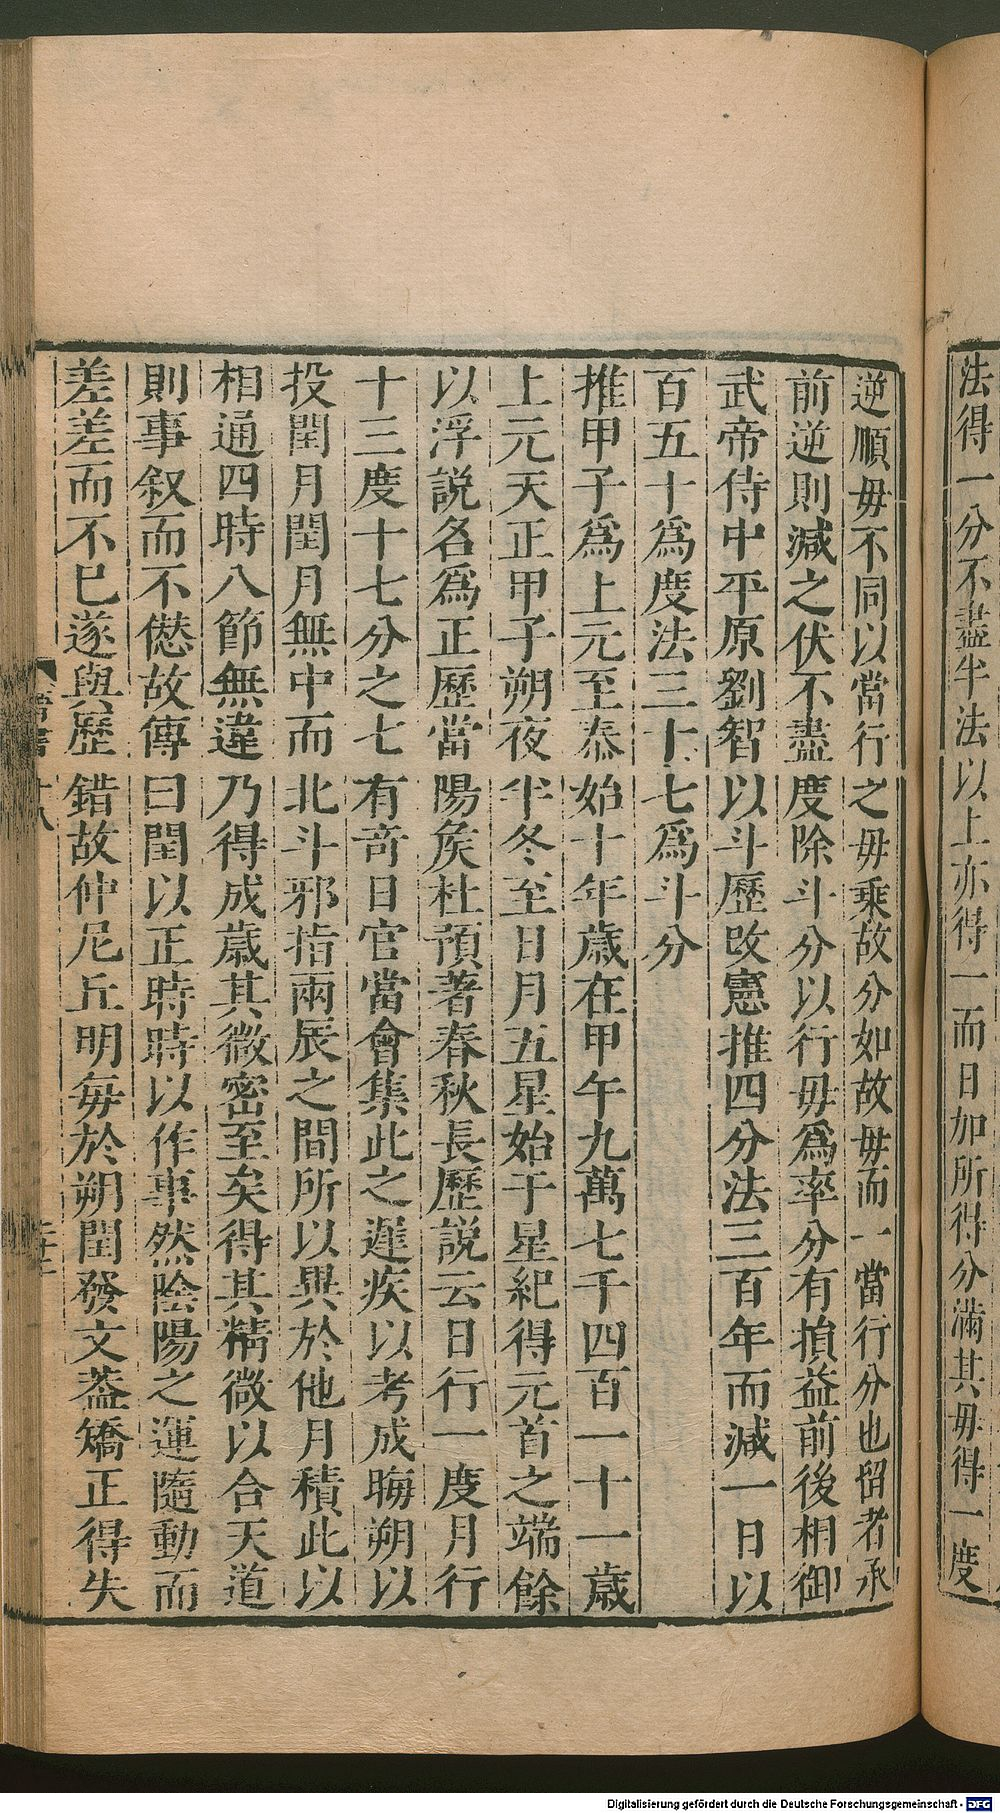 法得一分不盡半法以上亦得一而日加所得分滿其毋得一度
逆順毋不同以當行之毋乘故分如故毋而一當行分也留者承
前逆則減之伏不盡度除斗分以行毋爲率分有損益前後相御
武帝侍中平原劉智以斗歷改憲推四分法三百年而減一日以
百五十爲度法三十七爲斗分
推甲子爲上元至泰始十年歲在甲午九萬七千四百一十一歲
上元天正甲子朔夜半冬至日月五星始于星紀得元首之端餘
以浮説名爲正歷當陽矦杜預著春秋長歷説云日行一度月行
十三度十七分之七有奇日官當會集此之遲疾以考成晦朔以
投閏月閏月無中而北斗邪指兩辰之間所以異於他月積此以
相通四時八節無違乃得成歲其微密至矣得其精微以合天道
則事叙而不愆故傳曰閏以正時時以作事然陰陽之運隨動而
差差而不已遂與歷錯故仲尼丘明每於朔閏發文葢矯正得失
晉書十八
Digitalisierung gefördert durch die Deutsche Forschungsgemeinschaft - DFG